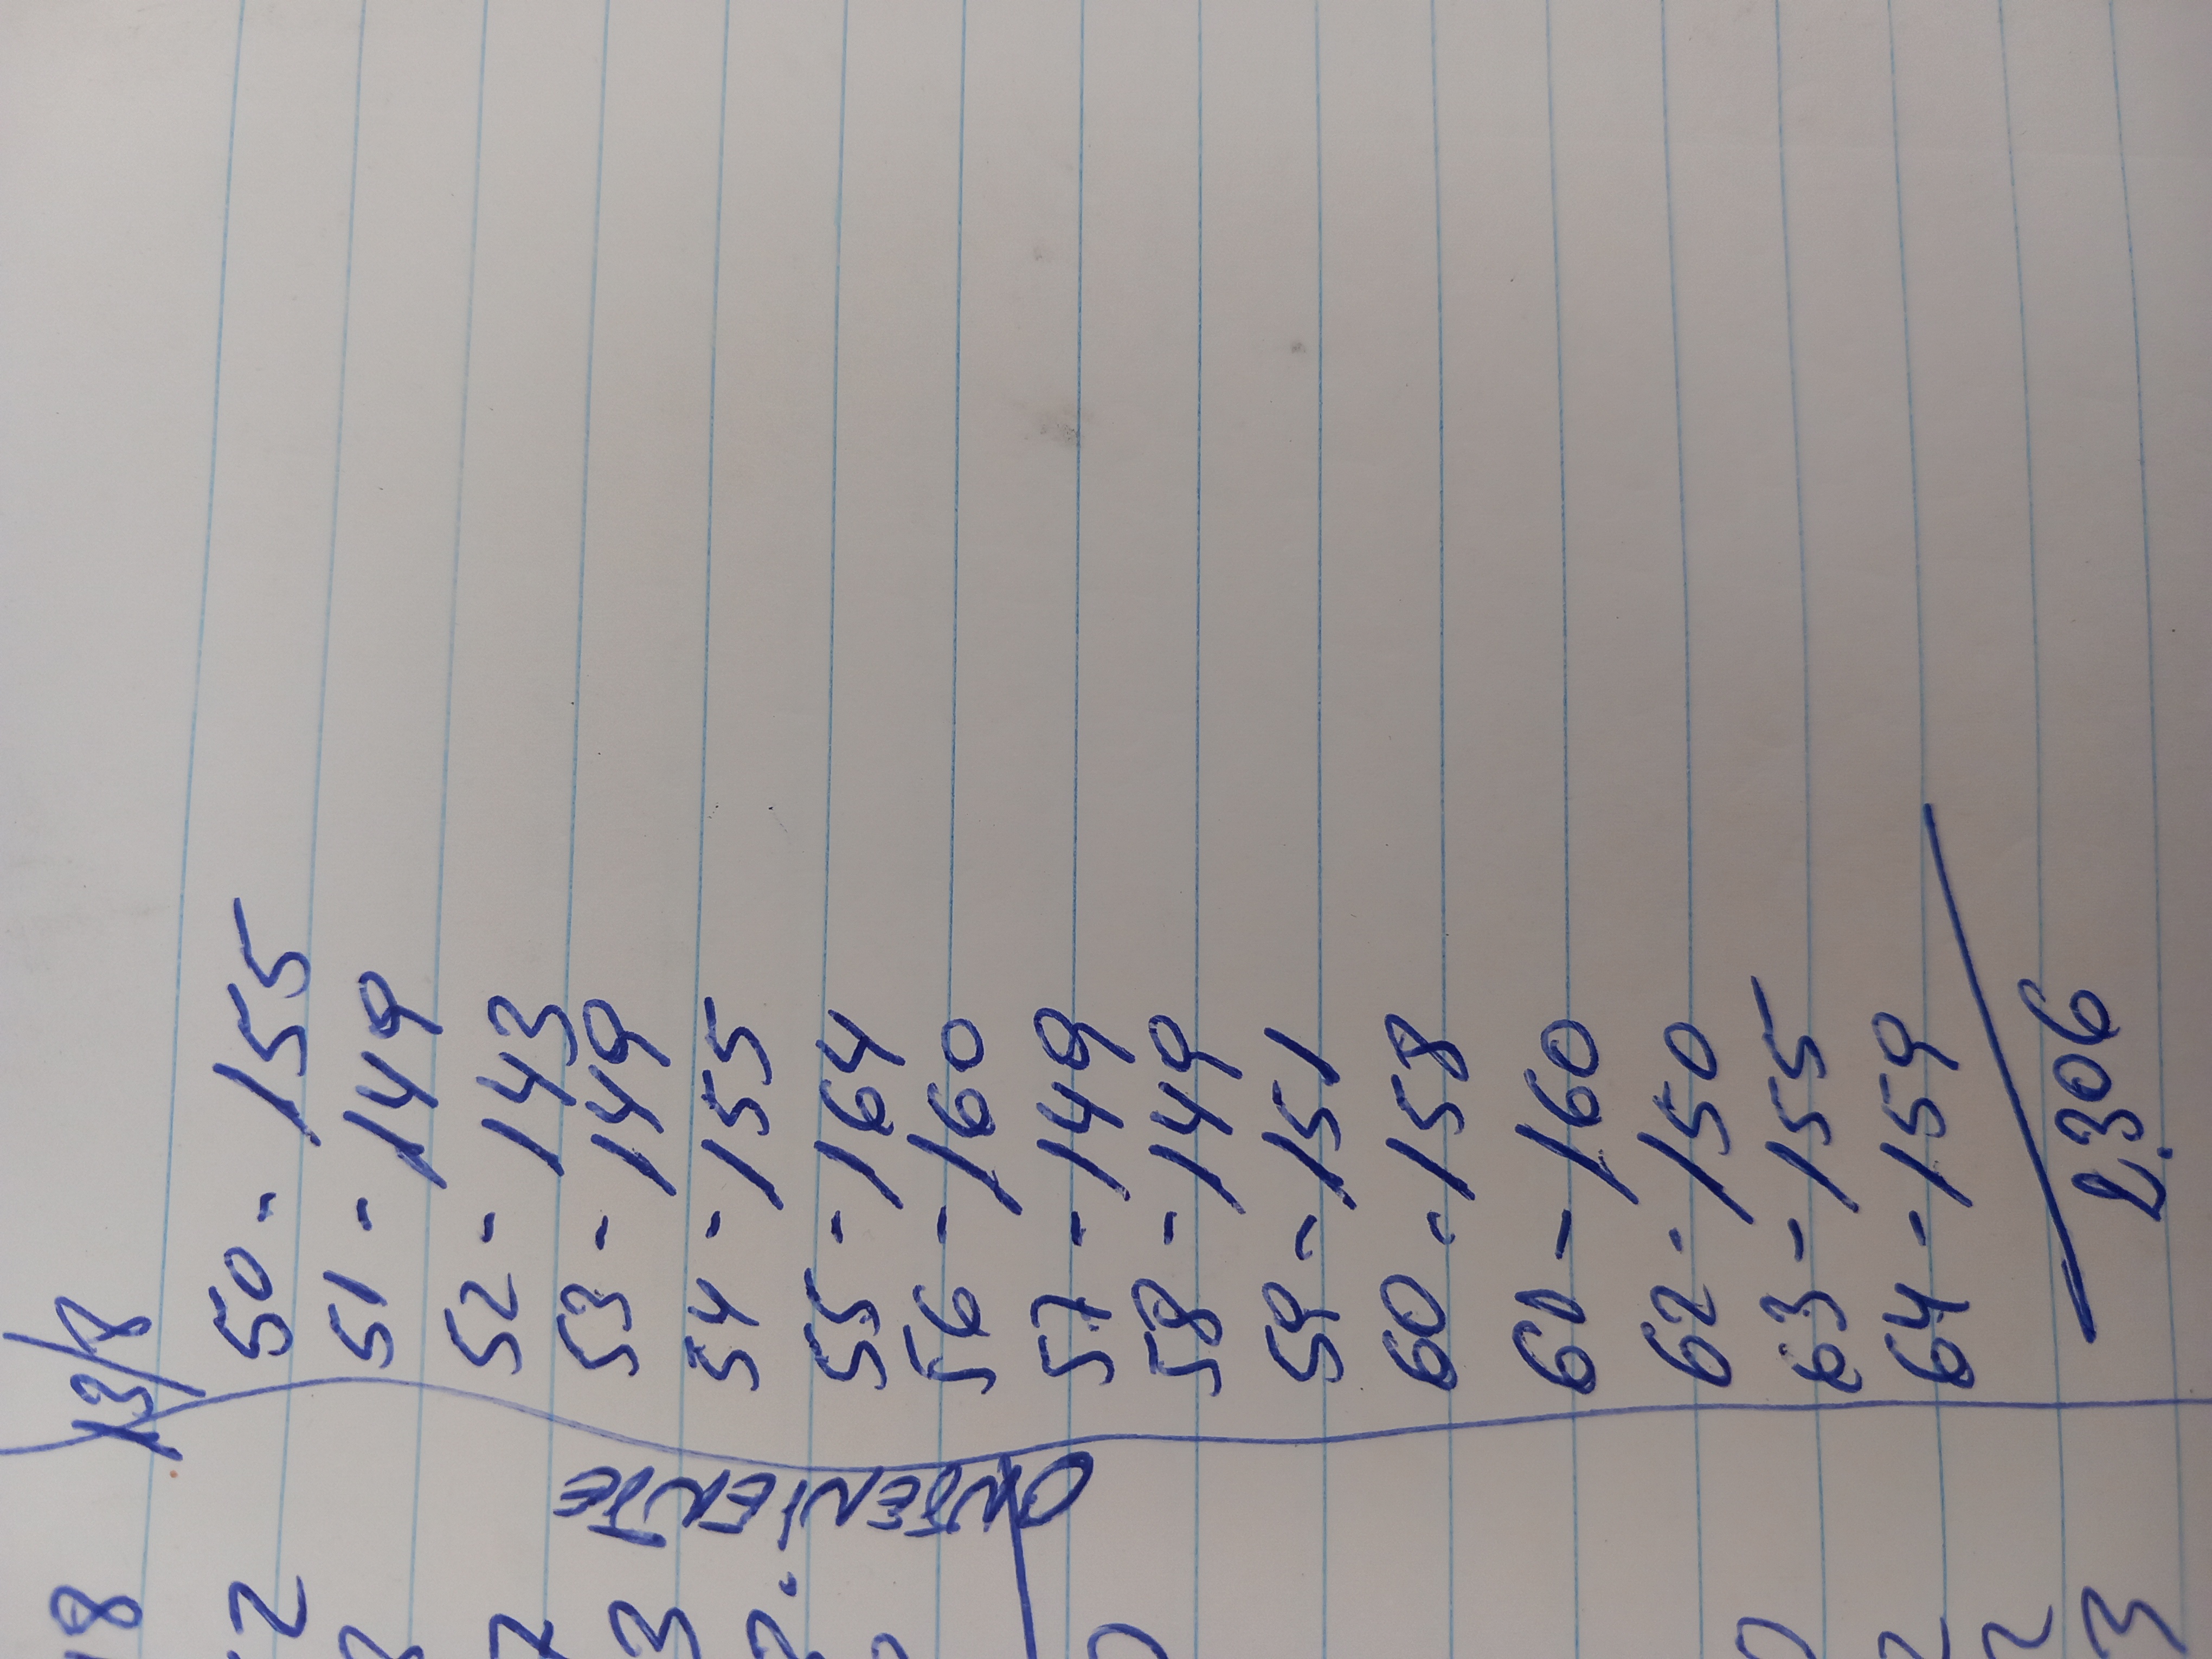 13/8
50 - 155
51 - 149
52 - 143
53 - 149
54 - 155
55 - 164
56 - 160
57 - 149
58 - 149
59 - 151
60 - 158
61 - 160
62 - 150
63 - 155
64 - 159
2.306
ONTENIENTE